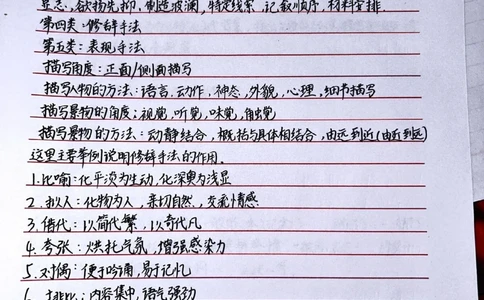 意志,欲扬先抑,制造波澜,特定线索,记叙顺序,材料安排
第四类:修辞手法
第五类:表现手法
描写角度:正面/侧面描写
描写人物的方法:语言,动作,神态,外貌,心理,细节描写
描写景物的角度;视觉,听觉,味觉,触觉
描写景物的方法:动静结合,概括与具体相结合,由远到近(由近到远)
这里主要举例说明修辞手法的作用.
1.比喻:化平淡为生动,化深奥为浅显
2.拟人:化物为人,亲切自然,交流情感
3.借代:以简代繁,以奇代凡
4.夸张:烘托气氛,增强感染力
5.对偶:便于吟诵,易于记忆
:内容集中,语气强劲